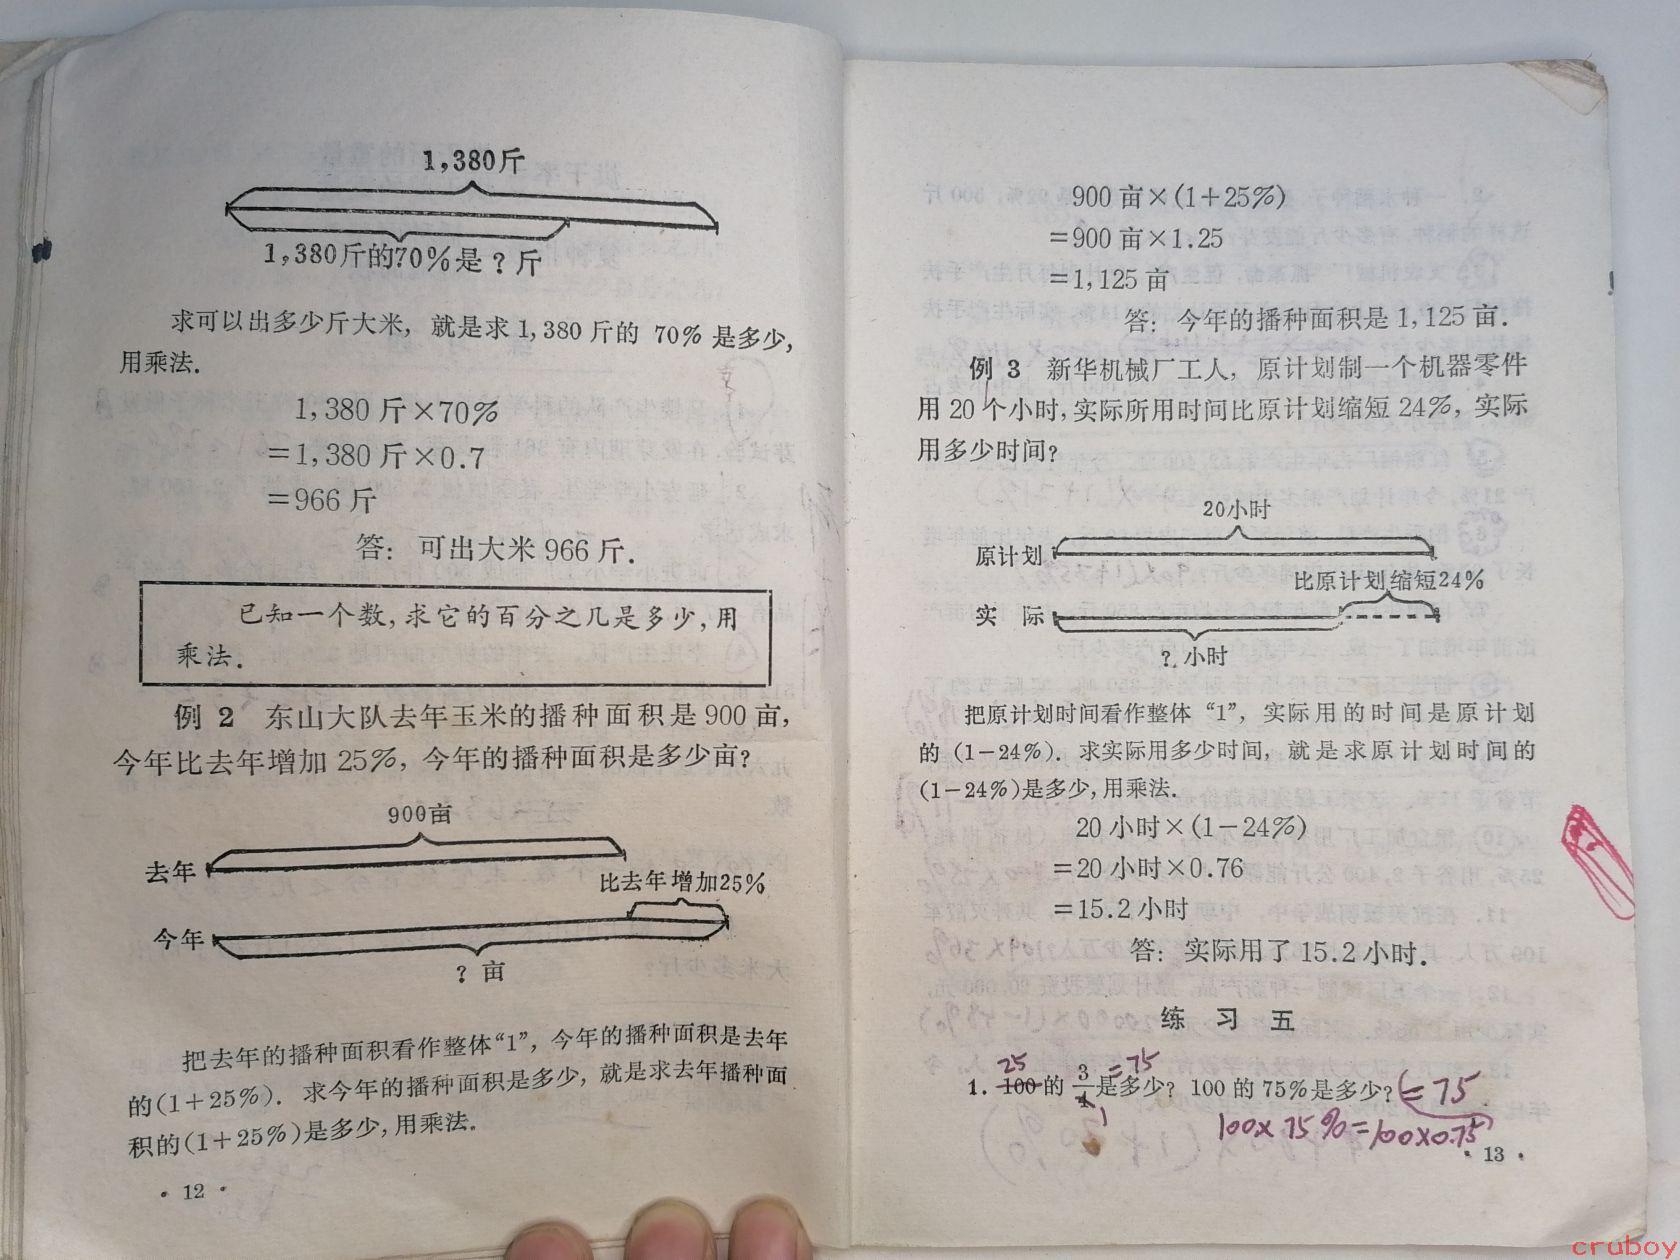 1,380斤
1,380斤的70%是?斤
求可以出多少斤大米, 就是求1,380斤的 70% 是多少,
用乘法.
1,380斤×70%
=1,380斤×0.7
=966斤
答: 可出大米966斤.
已知一个数,求它的百分之几是多少,用
乘法.
例 2 东山大队去年玉米的播种面积是900亩,
今年比去年增加25%, 今年的播种面积是多少亩?
900亩
去年
比去年增加25%
今年
? 亩
把去年的播种面积看作整体“1”, 今年的播种面积是去年
的(1+25%). 求今年的播种面积是多少, 就是求去年播种面
积的(1+25%)是多少,用乘法.
· 12 ·
900亩×(1+25%)
=900亩×1.25
=1,125亩
答: 今年的播种面积是1,125亩.
例 3 新华机械厂工人, 原计划制一个机器零件
用20个小时,实际所用时间比原计划缩短24%, 实际
用多少时间?
20小时
原计划
比原计划缩短24%
实 际
?小时
把原计划时间看作整体“1”, 实际用的时间是原计划
的(1-24%). 求实际用多少时间, 就是求原计划时间的
(1-24%)是多少,用乘法.
20小时×(1-24%)
=20小时×0.76
=15.2小时
答: 实际用了15.2小时.
练 习 五
25 =75
1. 100的3/4是多少? 100的75%是多少? (=75
1
100×75%=100×0.75)
· 13 ·
cruboy